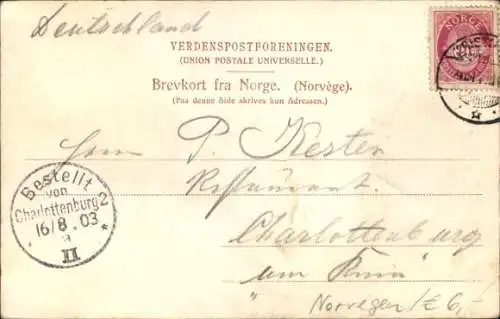 Deutschland
NORGE
VERDENSPOSTFORENINGEN.
(UNION POSTALE UNIVERSELLE.)
Brevkort fra Norge. (Norvège).
(Paa denne Side skrives kun Adressen.)
Herrn P. Kesten
Restaurant
Bestellt
von
Charlottenburg 2
16/8.03
II
Charlottenburg
am Knie
" Norwegen